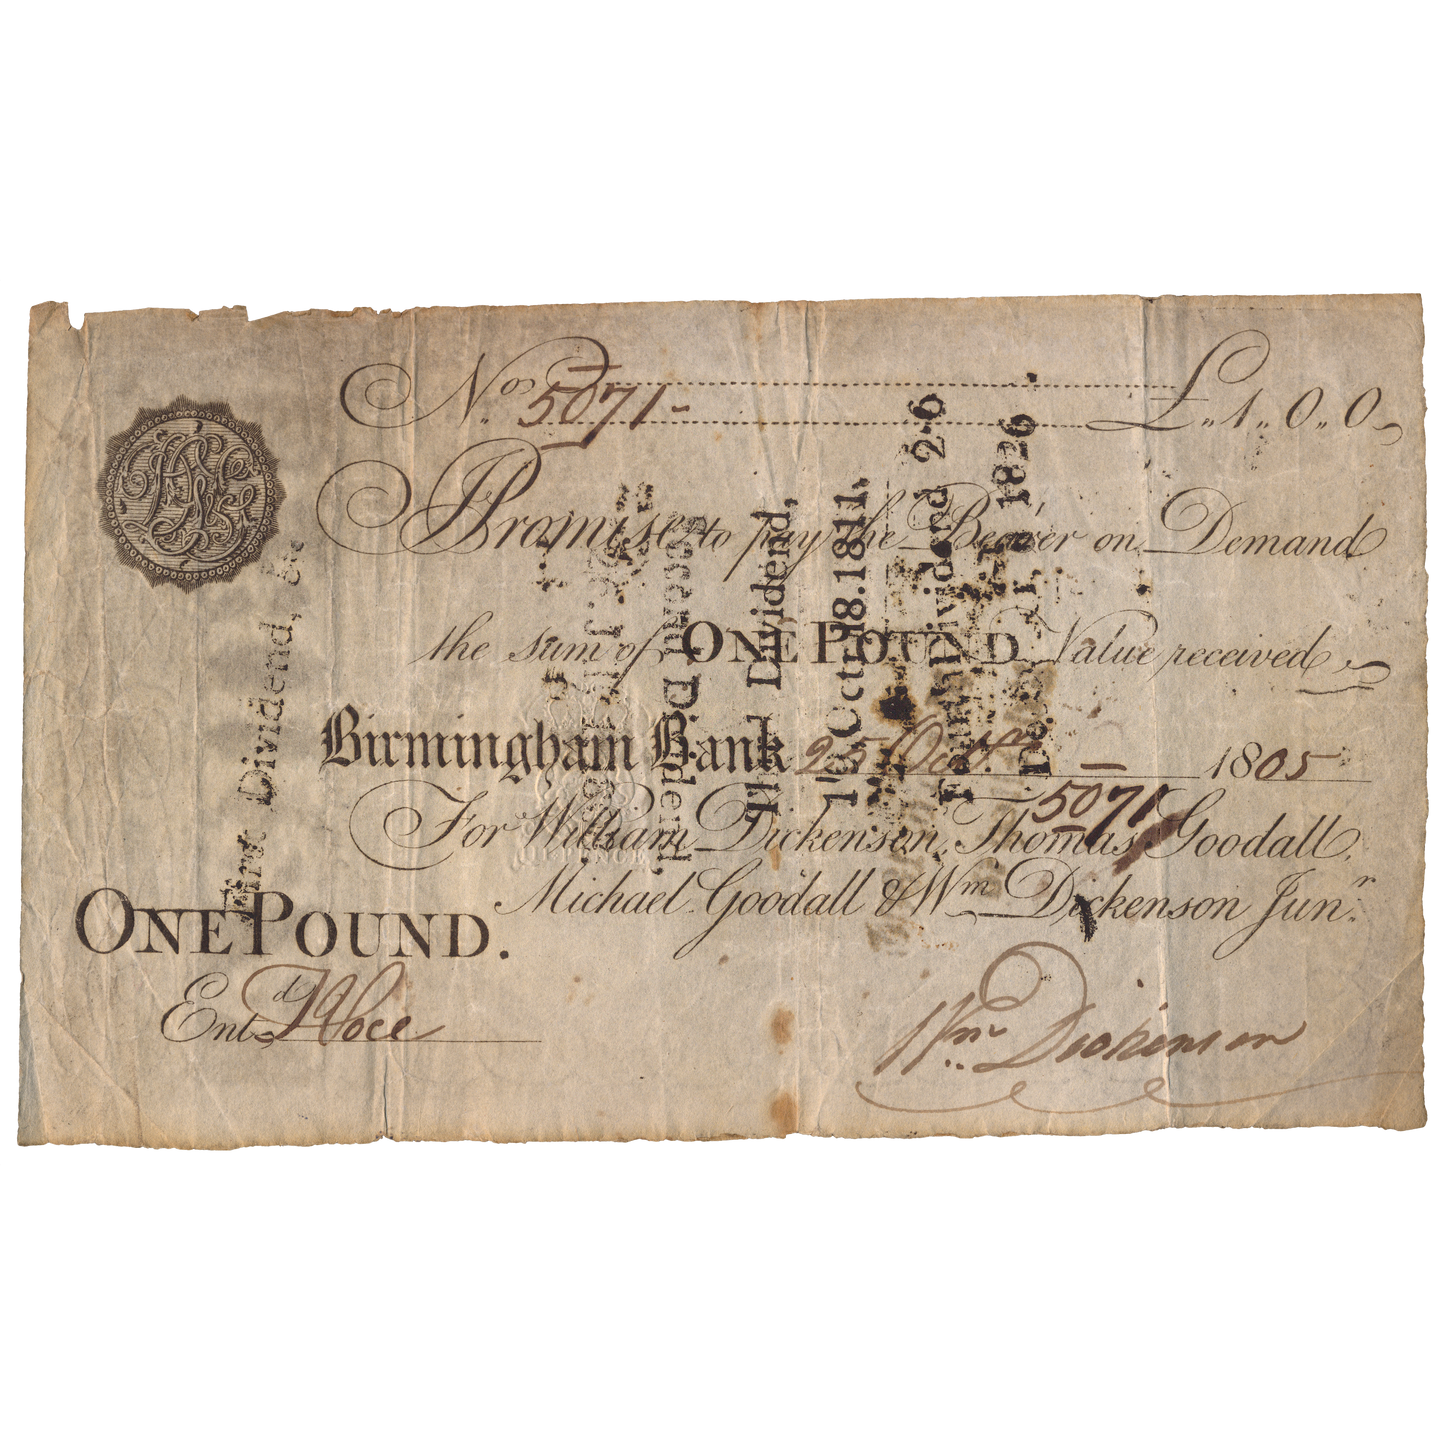 No. 5071 - £ " 1 " 0 " 0
I Promise to pay the Bearer on Demand
the sum of ONE POUND Value received
Birmingham Bank 25 Octr. — 1805
5071
For William Dickenson, Thomas Goodall,
Michael Goodall & Wm. Dickenson Junr.
ONE POUND.
Entd.
Wm. Dickenson
First Dividend,
Second Dividend
Third Dividend,
Oct. 18. 1811.
Dividend 2·6
1826